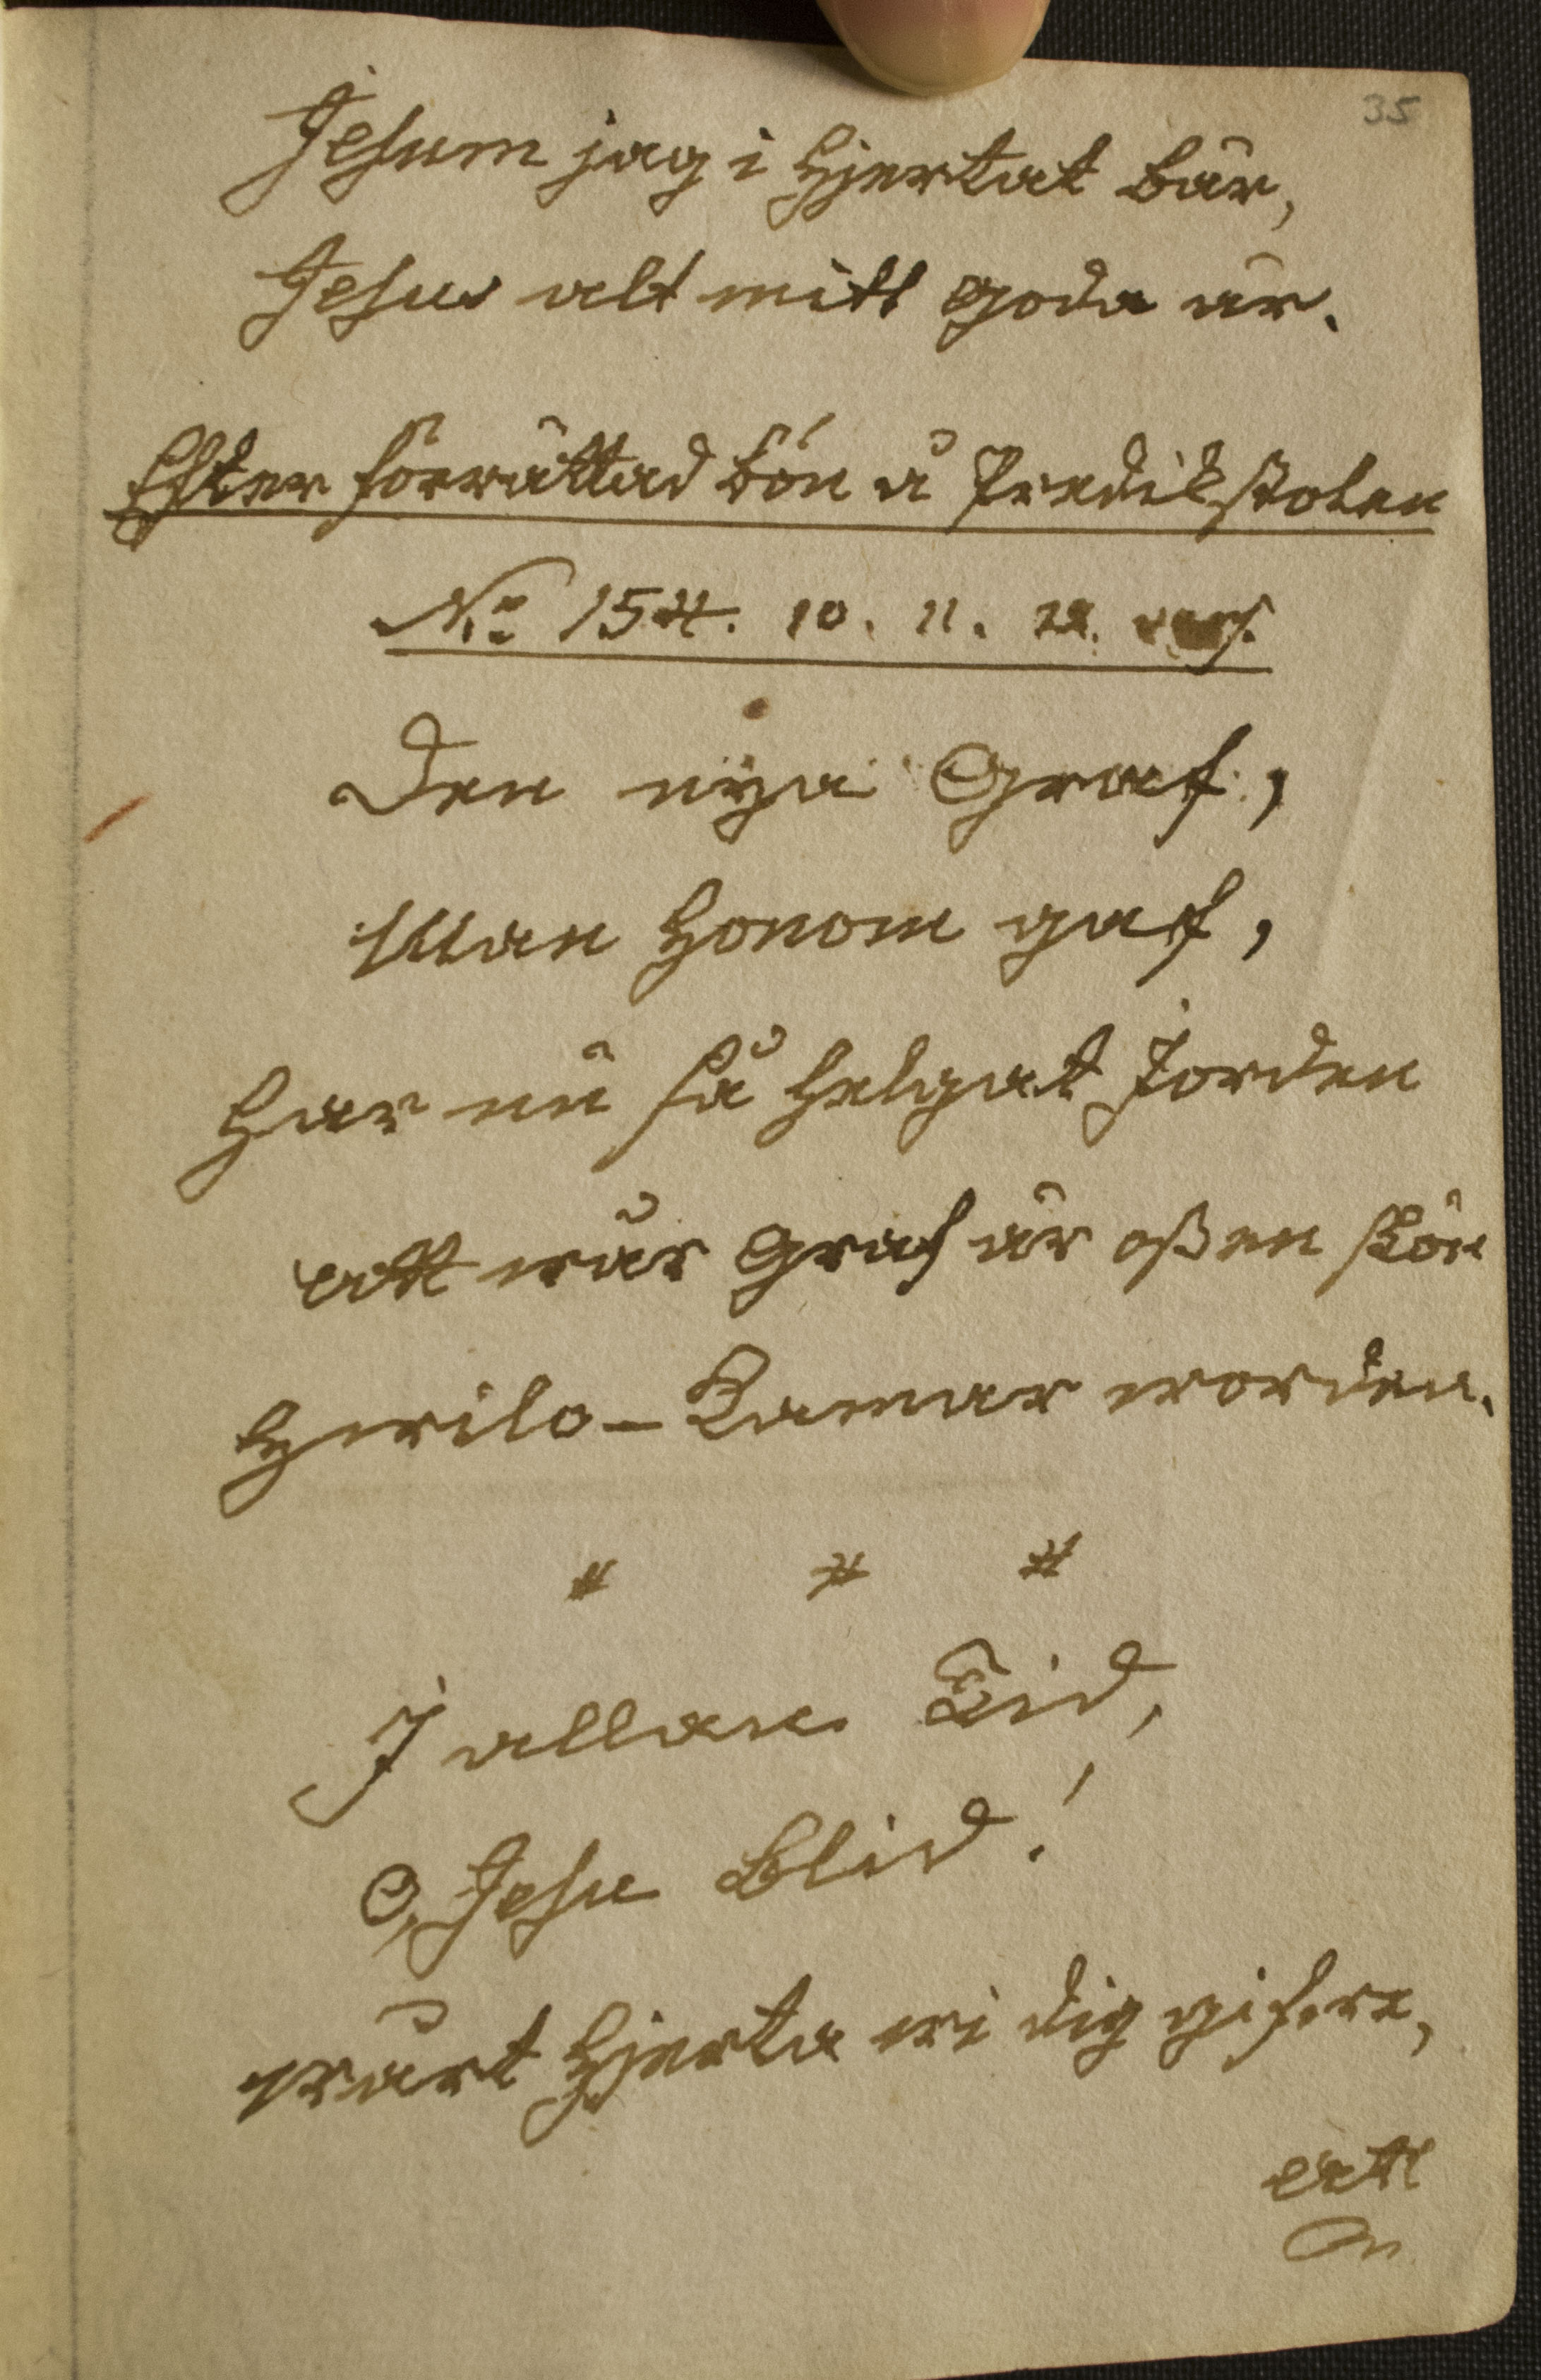 35
Jesum jag i Hjertat bär,
Jesus alt mitt goda är.
Efter förrättad bön å Predikstolen
No 154. 10. 11. 12. vers.
Den nya Graf,
Man Honom gaf,
Har nu så helgat Jorden
att wår Graf är oßen skön
Hwilo-Kamar worden.
* * *
I allan Tid,
O, Jesu blid!
wårt Hjerta wi dig gifwe,
att